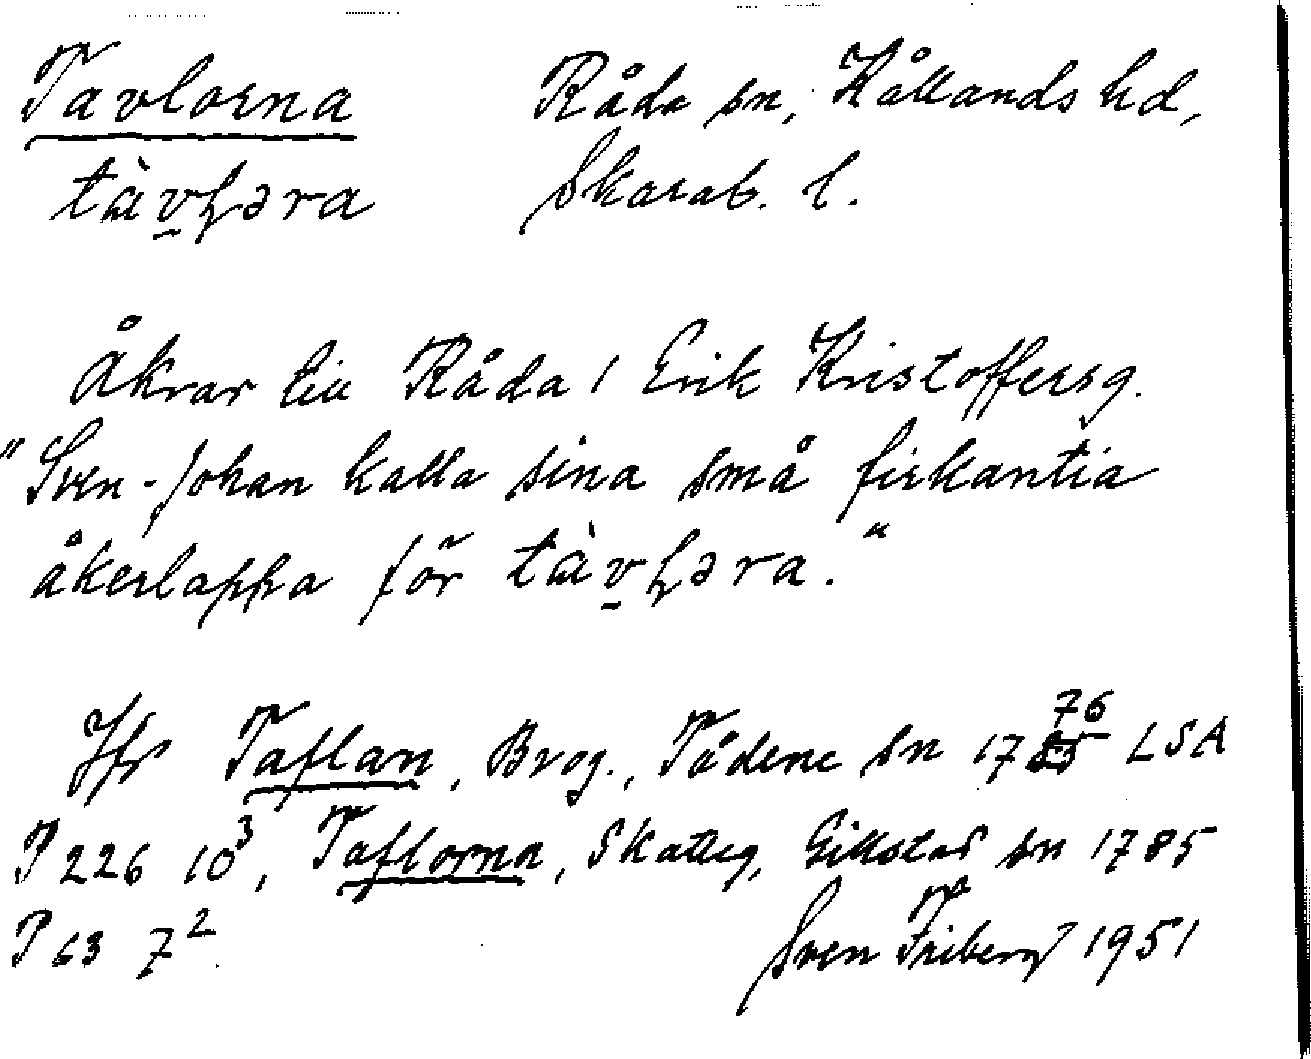 Tavlorna Råda sn, Kållands hd,
tàv̱ḷəra Skarab. l.
Åkrar till Råda 1 Erik Kristoffersg.
"Sven-Johan kalla sina små firkantia
åkerlappa för tàv̱ḷəra."
Jfr Taflan, Brog., Tådene sn 1776 LSA
P 226 10³, Taflorna, Skatteg, Gillstad sn 1785
P 63 7².
Sven Friberg 1951